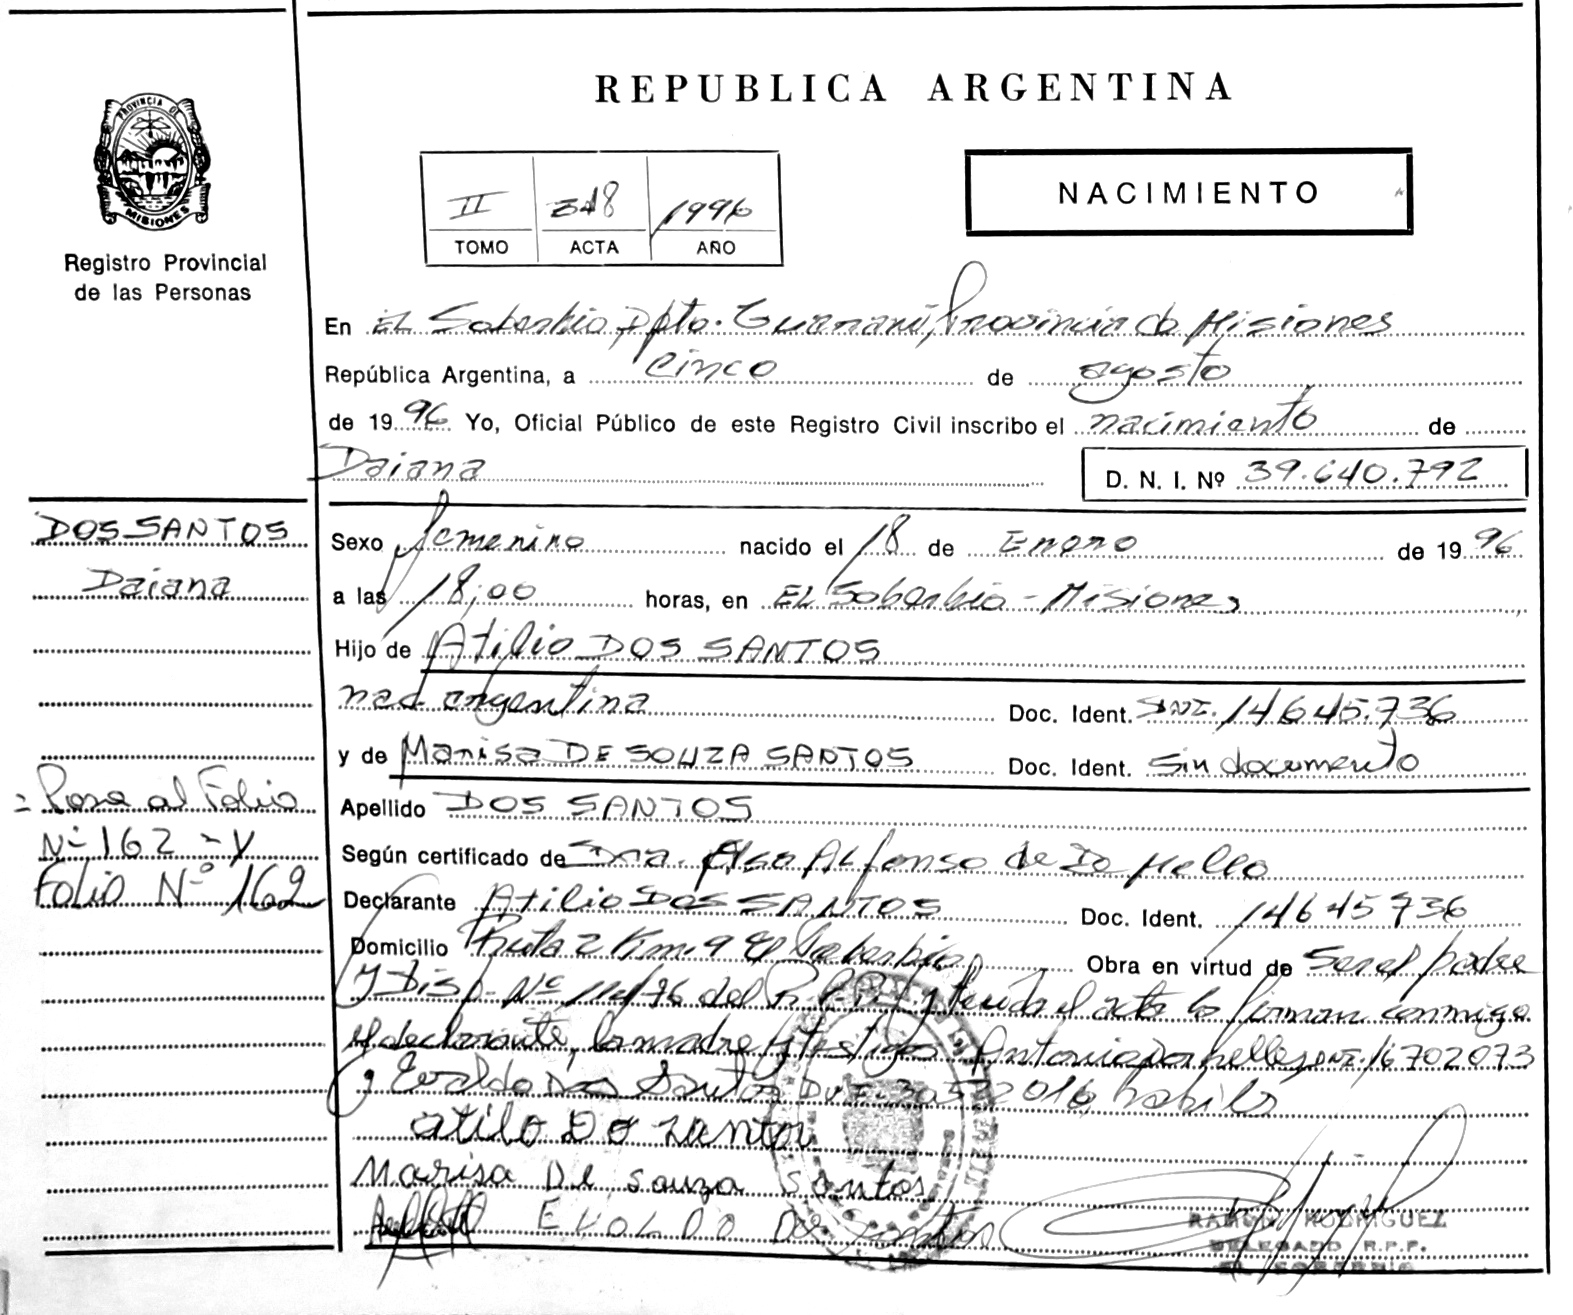 REPUBLICA ARGENTINA
PROVINCIA DE MISIONES
Registro Provincial
de las Personas
II 348 1996
TOMO ACTA AÑO
NACIMIENTO
En EL Soberbio, Dpto. Guaraní, Provincia de Misiones
República Argentina, a cinco de agosto
de 1996 Yo, Oficial Público de este Registro Civil inscribo el nacimiento de
Daiana D. N. I. Nº 39.640.792
DOS SANTOS
Daiana
Sexo femenino nacido el 18 de Enero de 1996
a las 18,00 horas, en EL Soberbio - Misiones
Hijo de Atilio DOS SANTOS
nac argentina Doc. Ident. DNI. 14645.736
y de Marisa DE SOUZA SANTOS Doc. Ident. Sin documento
= Pasa al Folio
Nº 162 - y
Folio Nº 162
Apellido DOS SANTOS
Según certificado de Dra. Elsa Alfonso de De Mello
Declarante Atilio DOS SANTOS Doc. Ident. 14645736
Domicilio Ruta 2 Km. 9 El Soberbio Obra en virtud de Ser el padre
y Disp. Nº del R.P.P. y leida el acta la firman conmigo
el declarante, la madre y testigos Antonio DNI. 16702073
y Evaldo Dos Santos DNI. habiles
atilo Do zanton
Marisa De Souza Santos
EVOLDO Dos Santos
RAMON RODRIGUEZ
DELEGADO R.P.P.
EL SOBERBIO